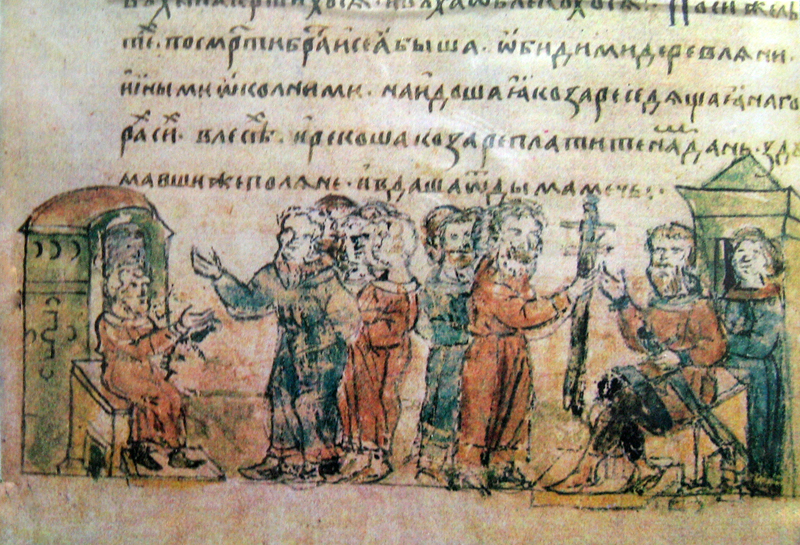 Посиⷯ же лѣ
теⷯ . по смр҃ти браⷮи сеѧ быша . ѡбидими деревлѧни .
инⸯыми ѡколними . наидоша ѧ козаре седѧщаѧ на го
раⷯ сиⷯ . в лесѣⷯ . и рекоша козаре платите наⷨ дань . здꙋ
мавши же полѧне . и вдаша ѿ дыма мечь :